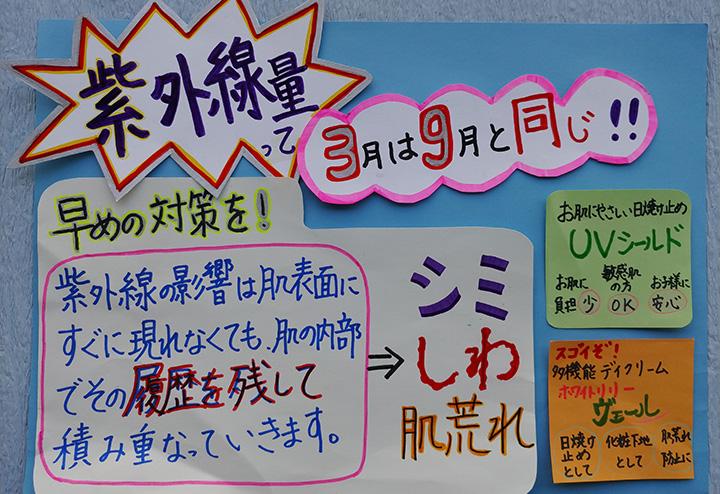 紫外線量って
3月は9月と同じ!!
早めの対策を!
紫外線の影響は肌表面に
すぐに現れなくても、肌の内部
でその履歴を残して
積み重なっていきます。
⇒
シミ
しわ
肌荒れ
お肌にやさしい日焼け止め
UVシールド
お肌に負担少
敏感肌の方OK
お子様に安心
スゴイぞ!
多機能デイクリーム
ホワイトリリー
ヴェール
日焼け止めとして
化粧下地として
肌荒れ防止に